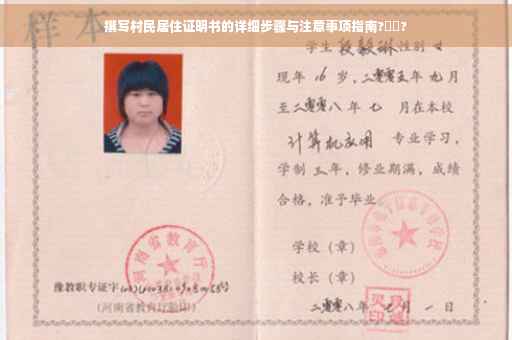 撰写村民居住证明书的详细步骤与注意事项指南?▯▯?
样本
学生 段毅琳 性别 女
现年 16 岁，二零零五年 九月
至二零零八年 七 月在本校
计算机应用 专业学习，
学制 三 年，修业期满，成绩
合格，准予毕业。
学校（章）
校长（章）
二零零八年 七 月 一 日
河南省教育厅
豫教职专证字
（河南省教育厅验印）